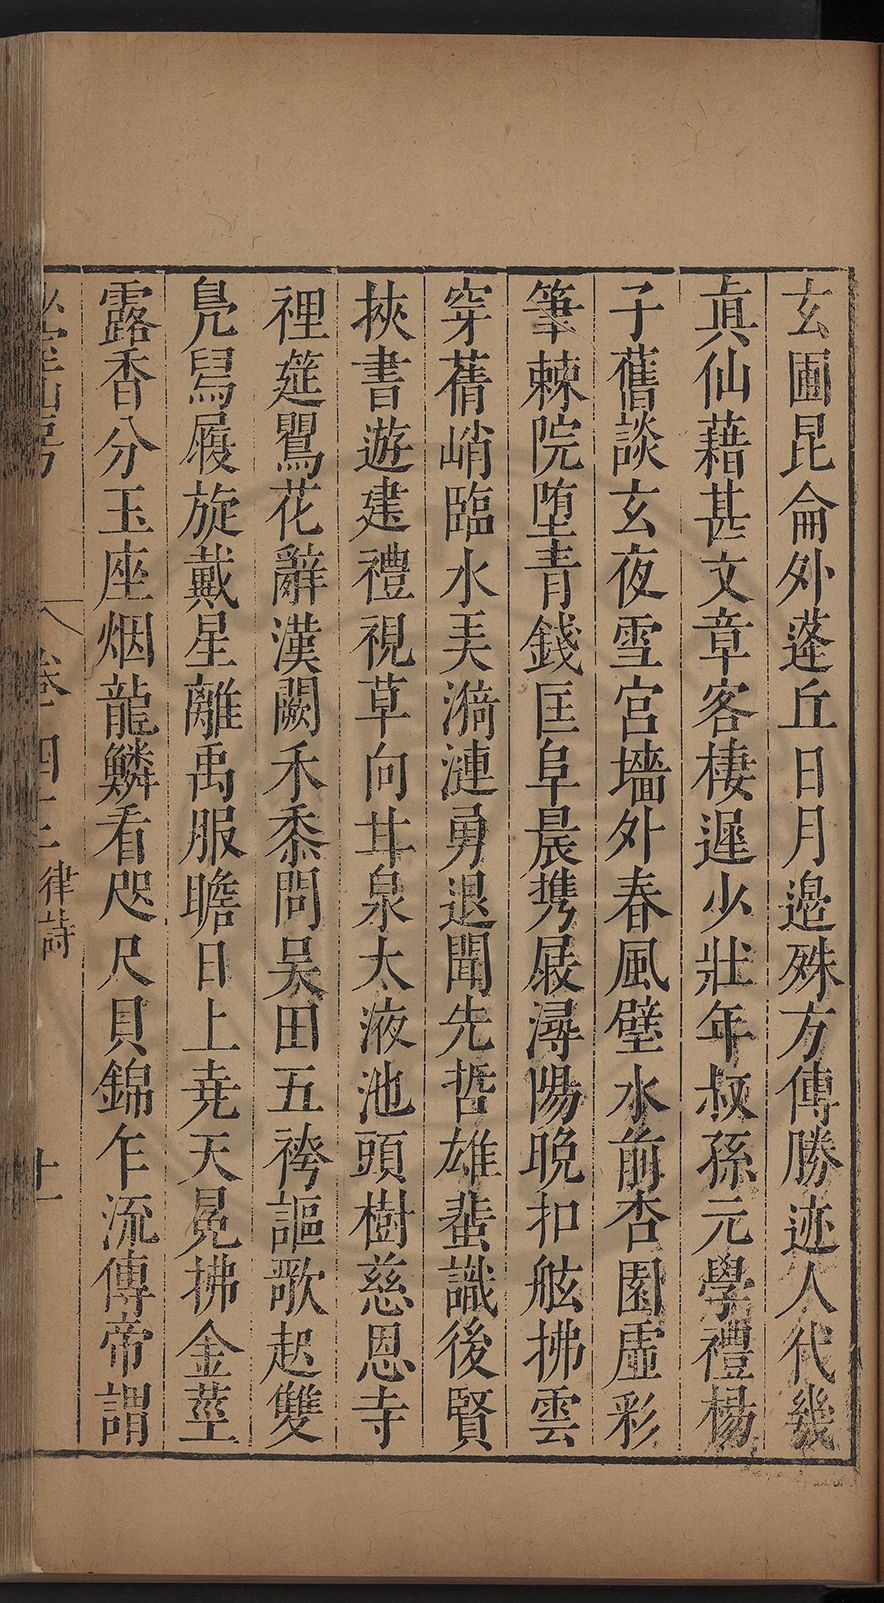 玄圃昆侖外蓬丘日月邉殊方傳勝迹人代幾
眞仙藉甚文章客棲遲少壯年叔孫元學禮楊
子舊談玄夜雪宮墻外春風璧水前杏園虛彩
筆棘院墮青錢匡阜晨攜屐潯陽晚扣舷拂雲
穿蒨峭臨水美漪漣勇退聞先哲雄蜚識後賢
挾書遊建禮視草向甘泉太液池頭樹慈恩寺
裡筵鸎花辭漢闕禾黍問吳田五袴謳歌起雙
鳧舄履旋戴星離禹服瞻日上堯天冕拂金莖
露香分玉座烟龍鱗看咫尺貝錦乍流傳帝謂
卷四十三 律詩 十一